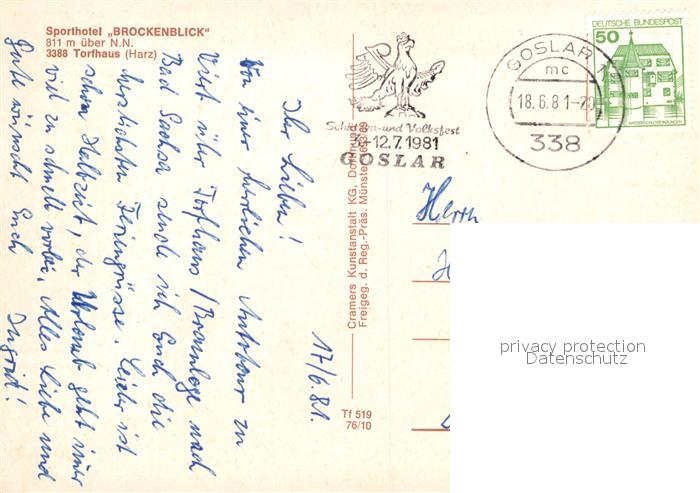 Sporthotel „BROCKENBLICK"
811 m über N.N.
3388 Torfhaus (Harz)
17/6.81.
Ihr Lieben!
Von einer herrlichen Autotour zu
Viert über Torfhaus / Braunlage nach
Bad Sachsa sende ich Euch die
herzlichsten Feriengrüsse. Leider ist
schon Halbzeit, der Urlaub geht immer
viel zu schnell vorbei. Alles Liebe und
Gute wünscht Euch Ingrid!
Cramers Kunstanstalt KG, Dortmund
Freigeg. d. Reg.-Präs. Münster
Tf 519
76/10
Schützen-und Volksfest
-12.7.1981
GOSLAR
GOSLAR 1
mc
18.6.81-20
338
DEUTSCHE BUNDESPOST
50
WASSERSCHLOSS INZLINGEN
Herrn
privacy protection
Datenschutz